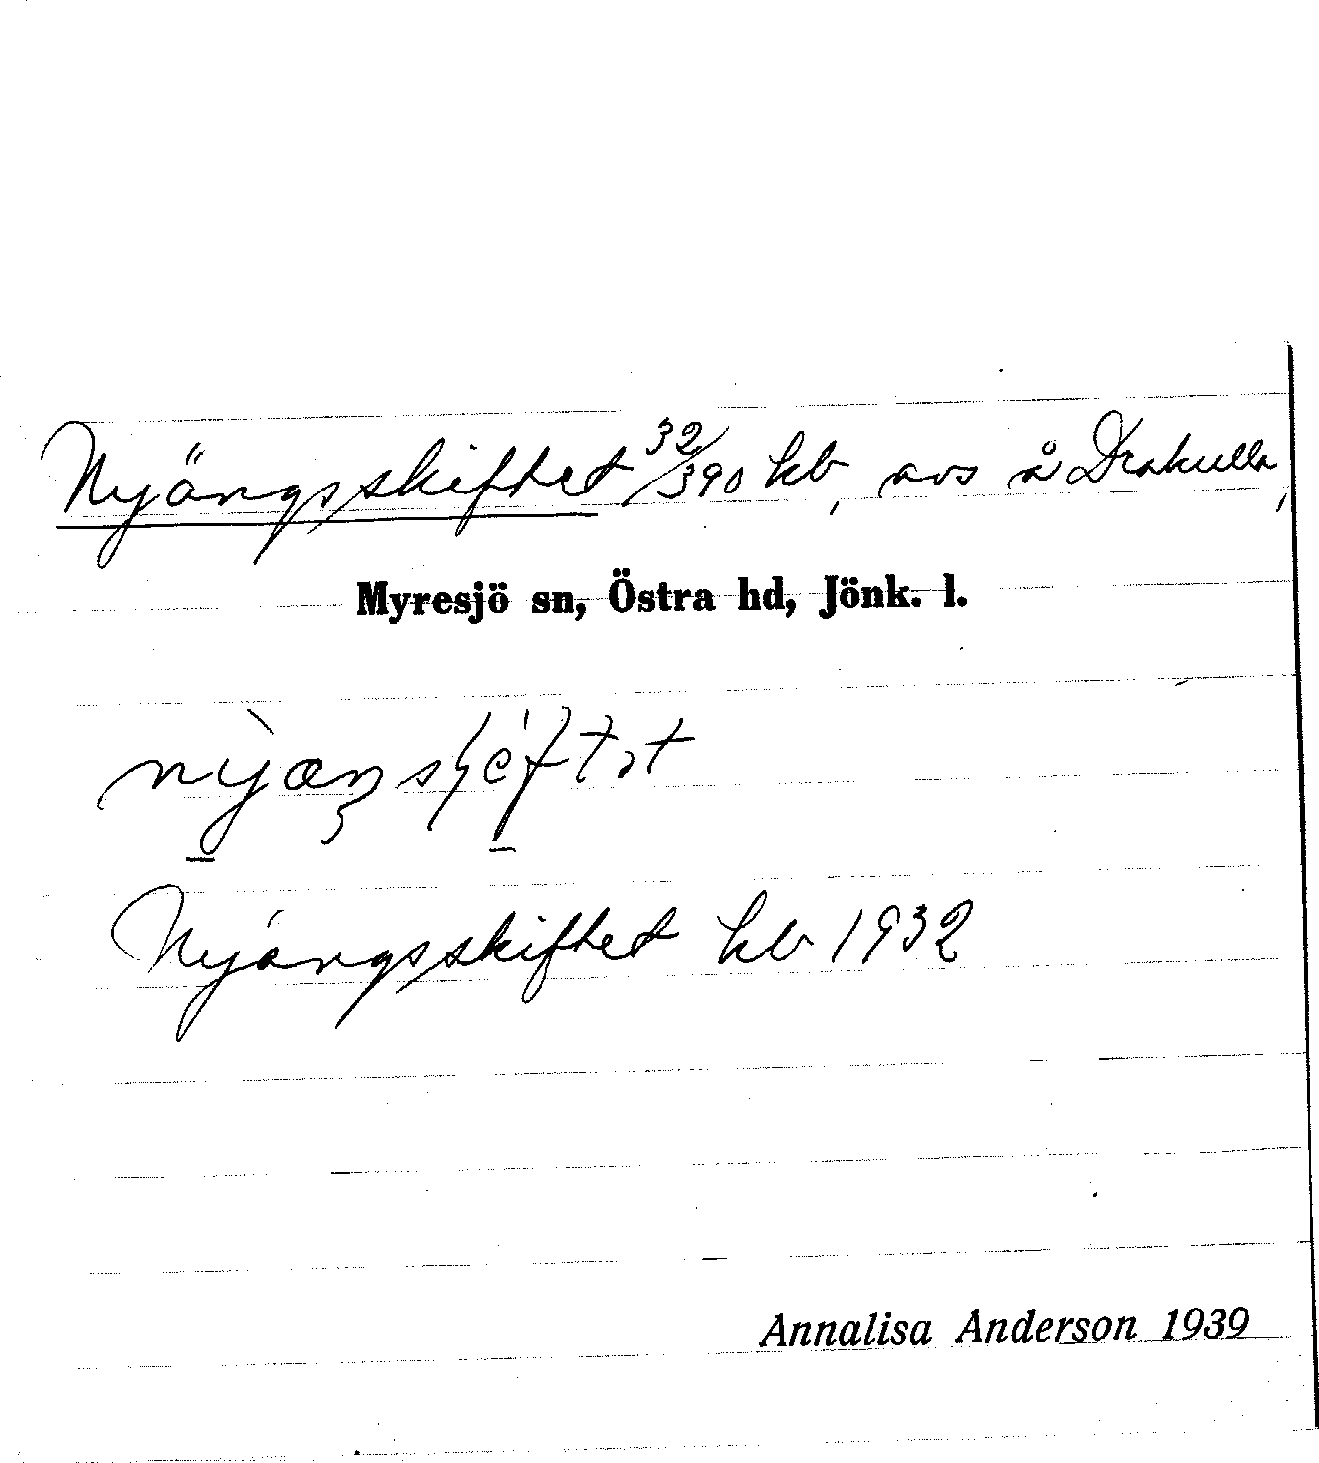 Nyängsskiftet 32/390 hb, avs å Drakulla,
Myresjö sn, Östra hd, Jönk. l.
Nyängsskiftet hb 1932
Annalisa Anderson 1939